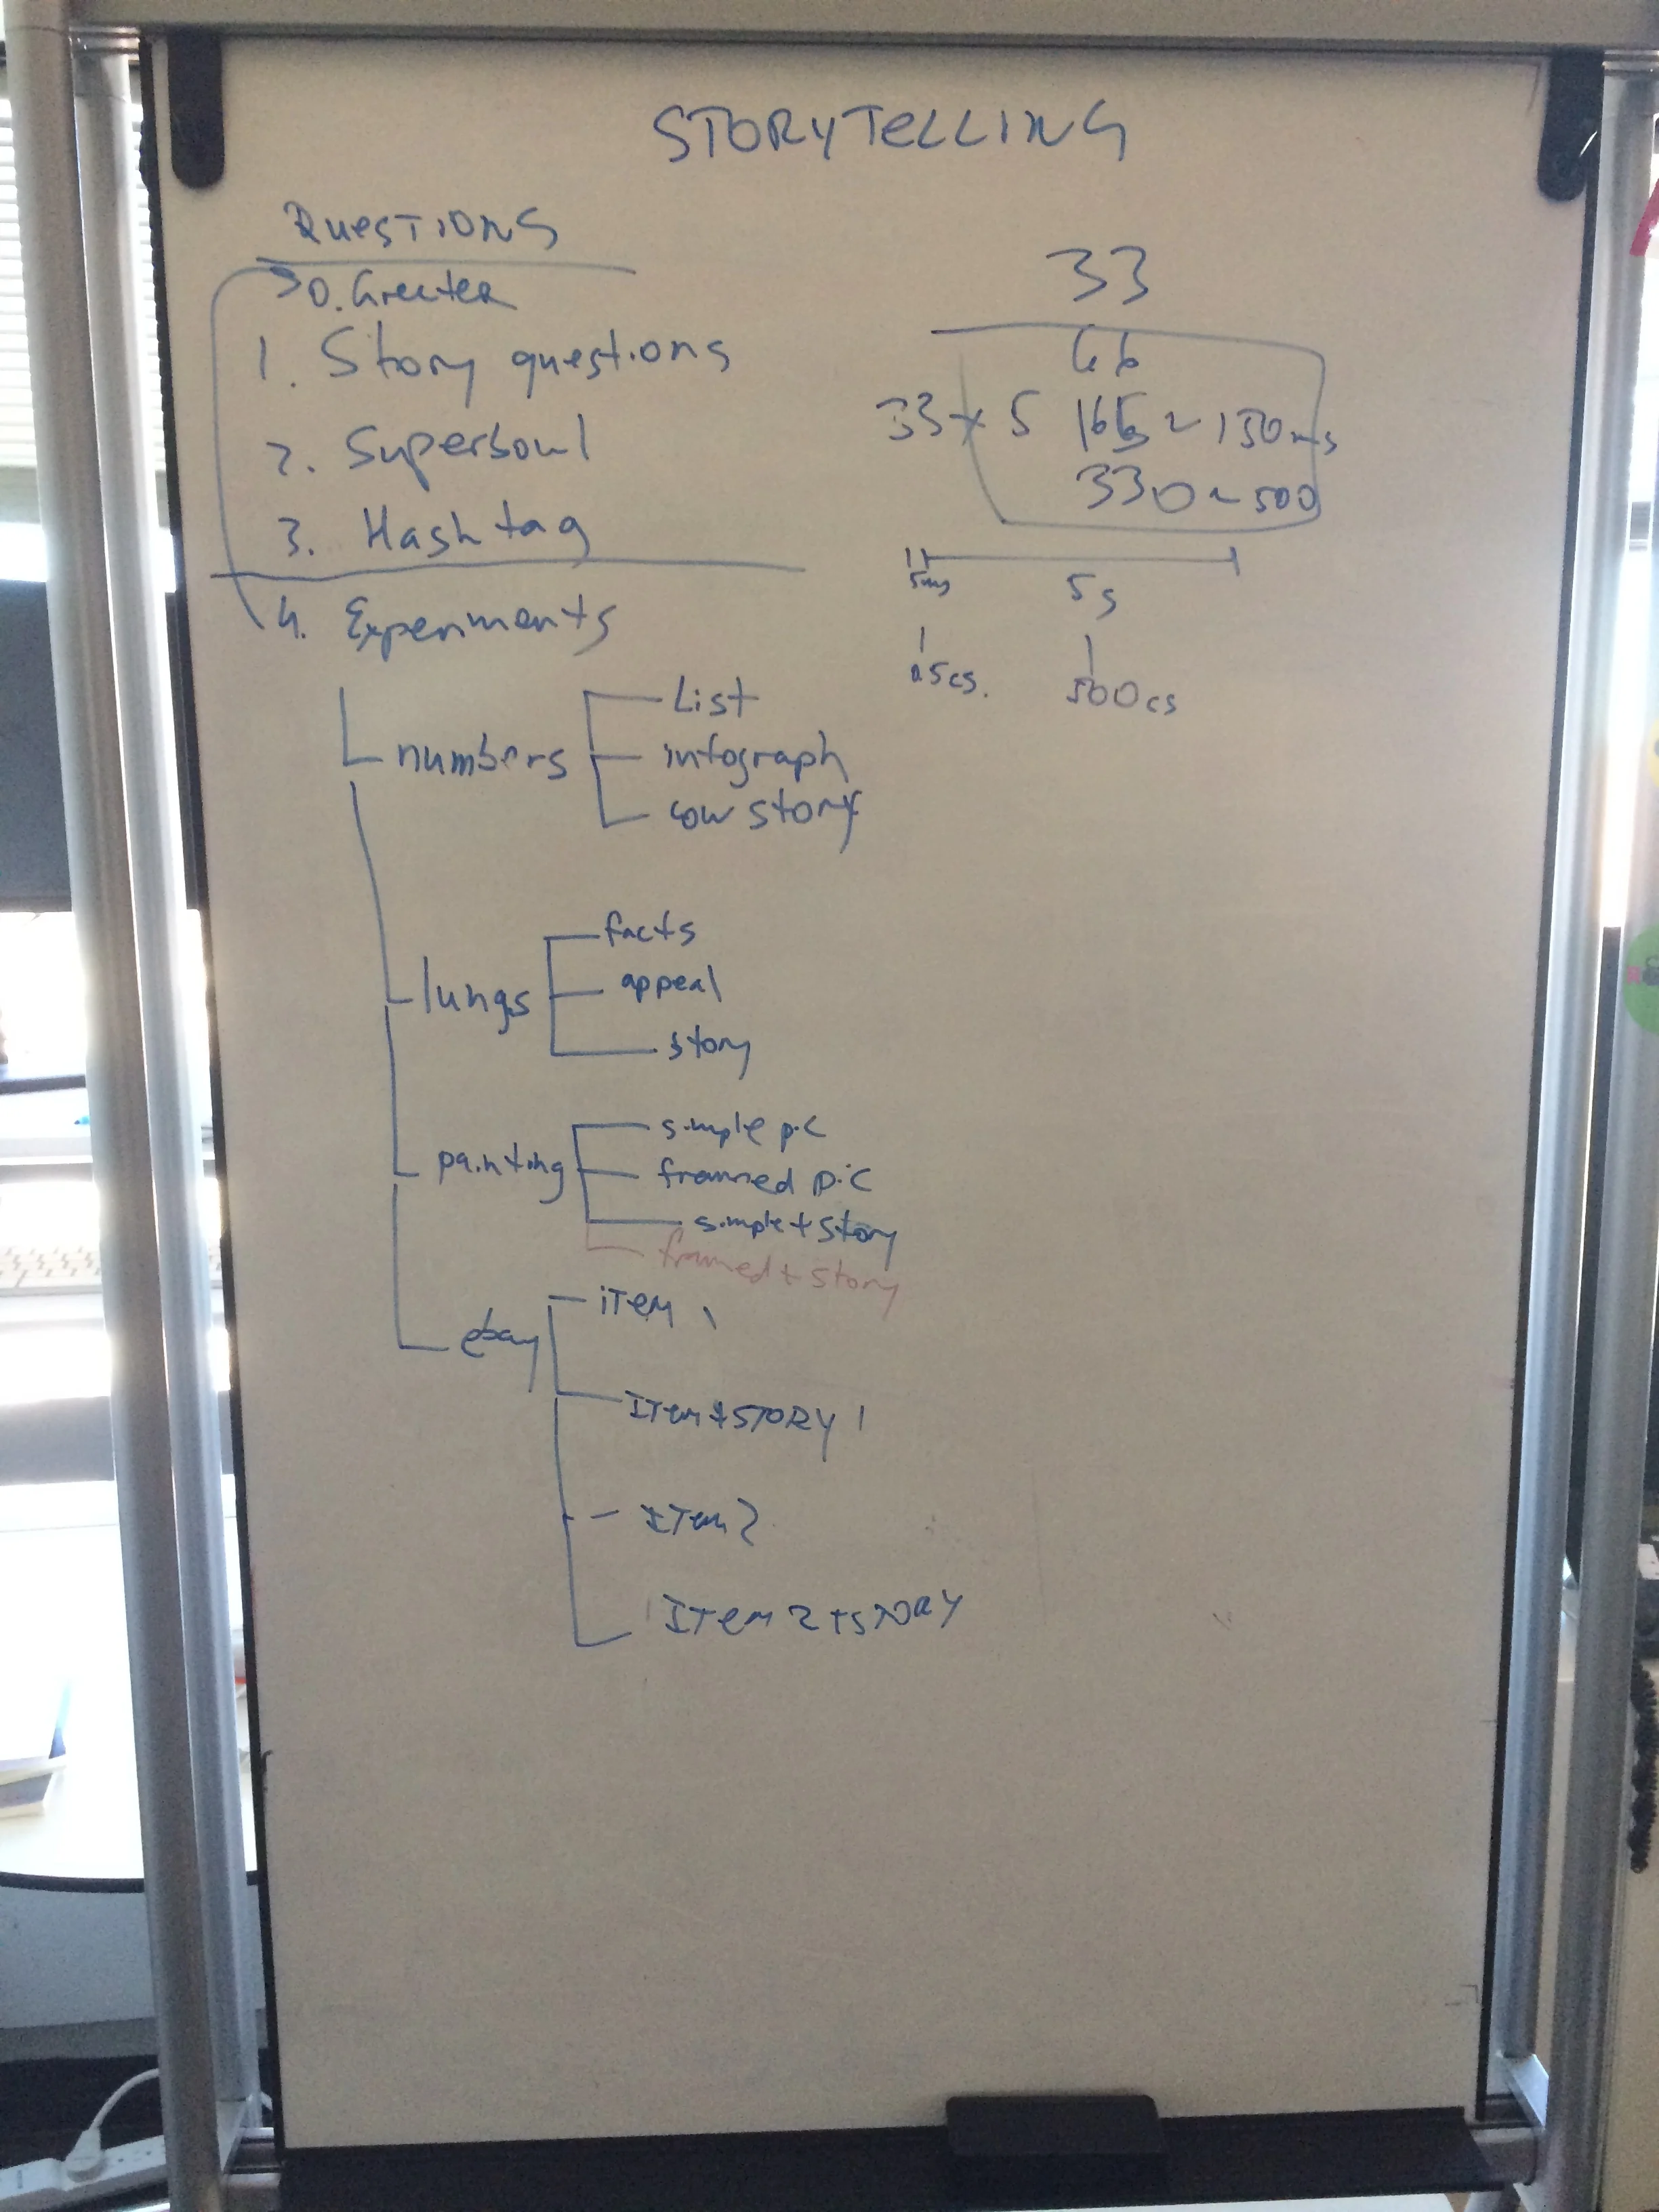 STORYTELLING
QUESTIONS
0. Greeter
1. Story questions
2. Superbowl
3. Hashtag
4. Experiments
numbers
List
infograph
cow story
lungs
facts
appeal
story
painting
simple pic
framed pic
simple + story
framed + story
ebay
item 1
Item + STORY 1
Item 2
Item 2 + STORY
33
66
33 x 5 165 ~ 130ms
330 ~ 500
5ms 5s
0.5cs. 500cs